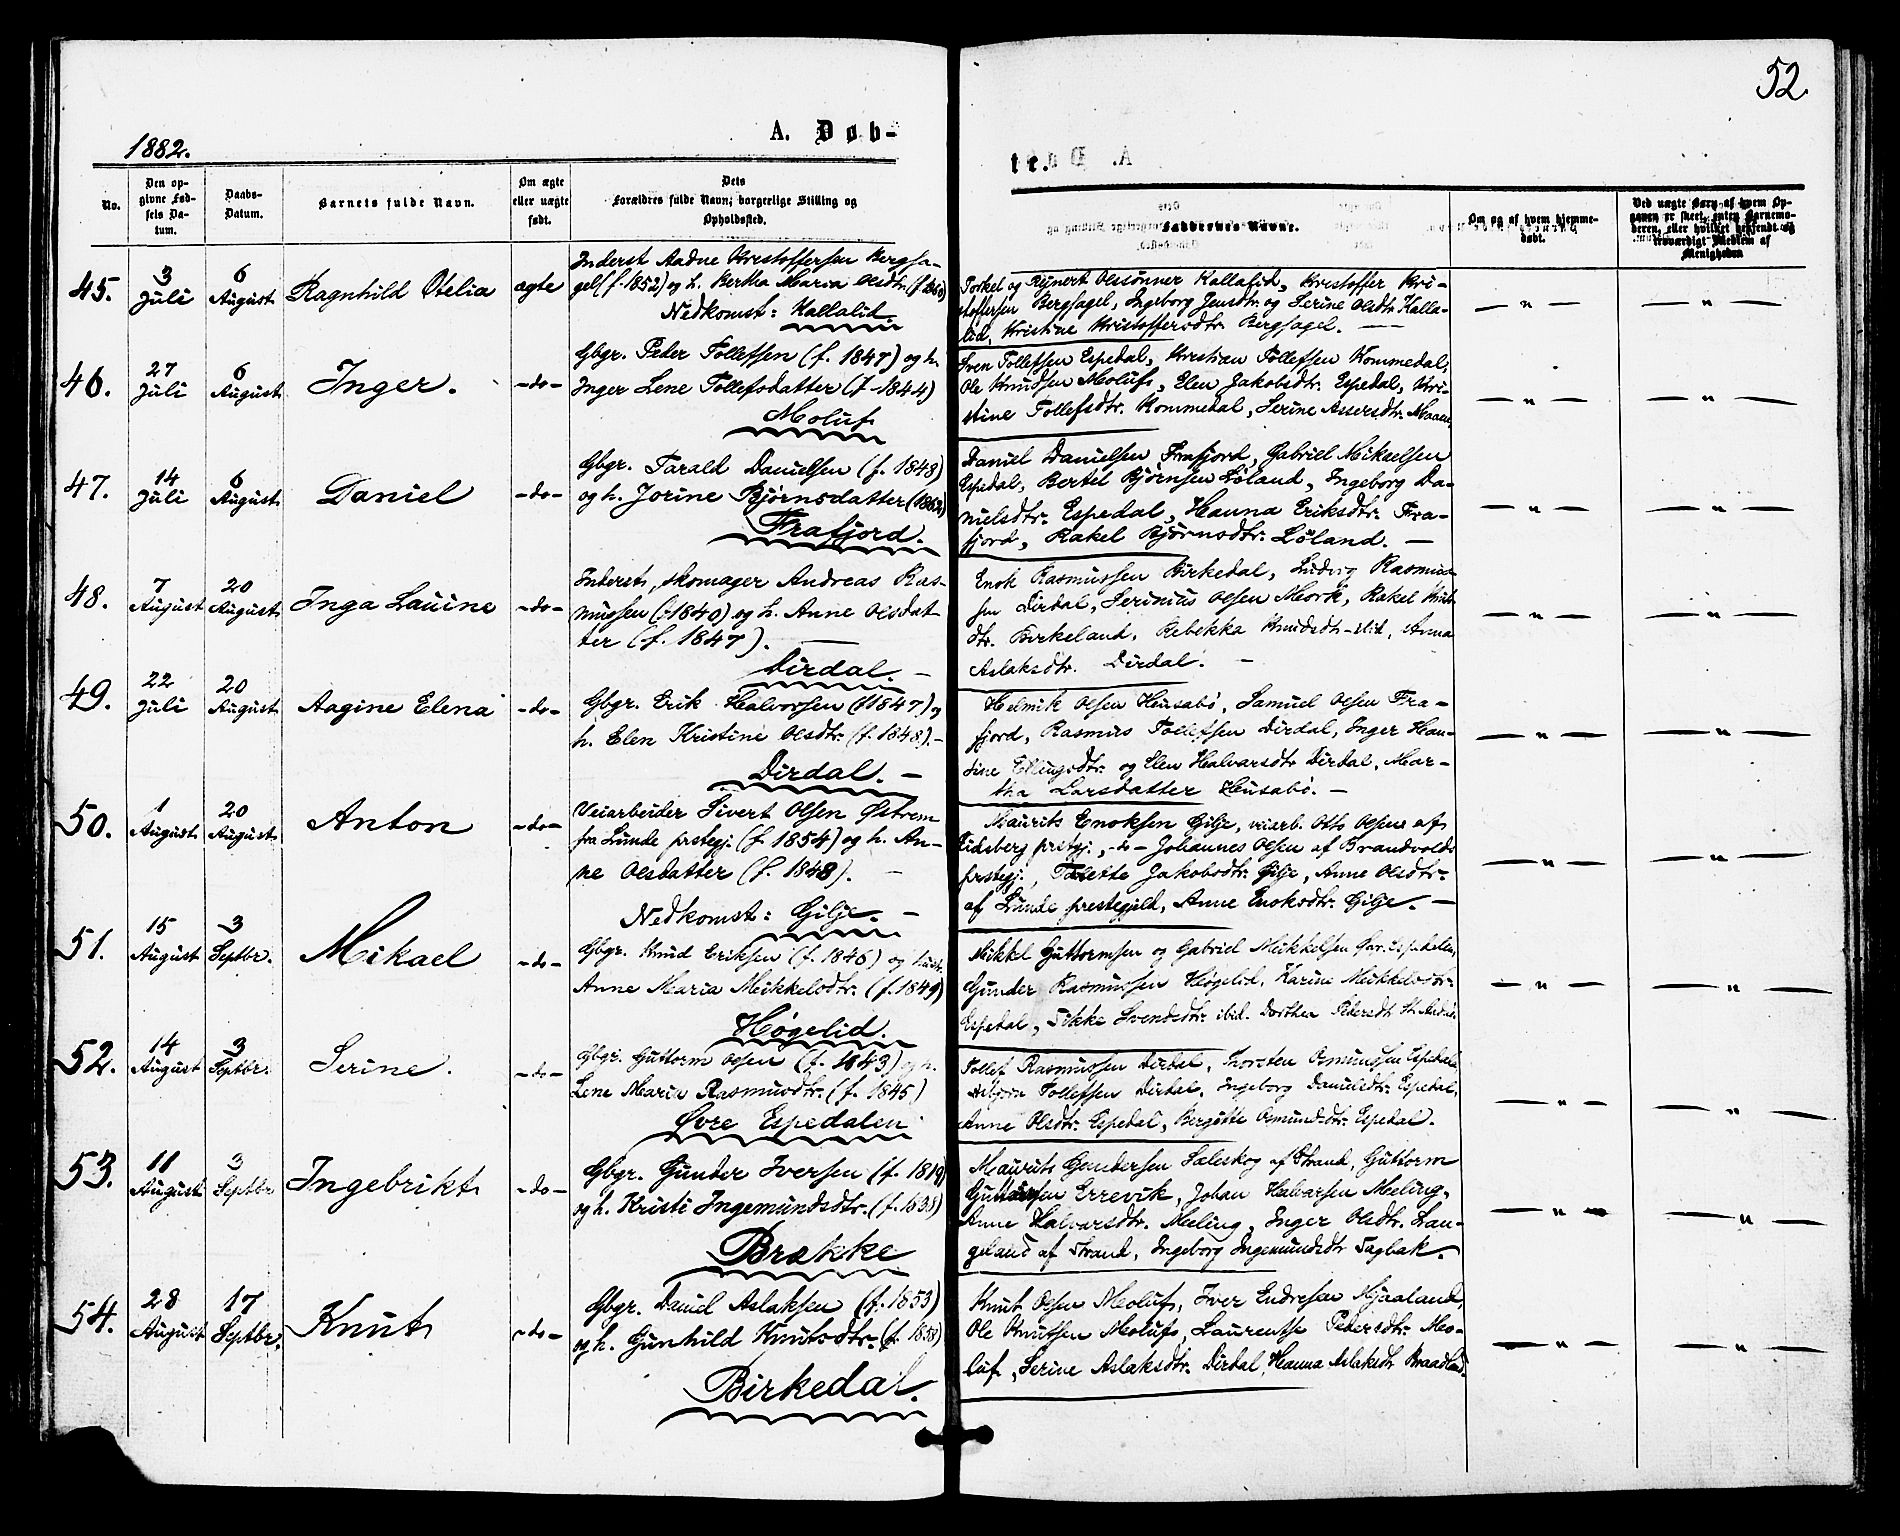 52.
1882.
A. Døb-
te.
No.
Den op-
givne Fød-
sels Da-
tum.
Daabs-
Datum.
Barnets fulde Navn.
Om ægte
eller uægte
født.
Dets
Forældres fulde Navn, borgerlige Stilling og
Opholdssted.
Faddernes Navne.
Om og af hvem hjemme-
døbt.
Ved uægte Børn af hvem Op-
gaven er skeet, enten Barnemo-
deren, eller hvilket bekjendt og
troværdigt Medlem af
Menigheden
45.
3
Juli
6
August
Ragnhild Otelia
ægte
Inderst Aadne Kristoffersen Bergsa-
gel (f. 1852) og h. Bertha Maria Olsdtr.
Nedkomst: Kallalid
Torkel og Reinert Olssønner Kallalid, Kristoffer Kri-
stoffersen Bergsagel, Ingeborg Jensdtr. og Serine Olsdtr. Kalla-
lid, Kristine Kristoffersdtr. Bergsagel. —
— " —
— " —
46.
27
Juli
6
August
Inger.
-do-
Gbgr. Peder Tollefsen (f. 1847) og h.
Inger Lene Tollefsdatter (f. 1844)
Moluf
Sven Tollefsen Espedal, Kristian Tollefsen Kommedal,
Ole Knudsen Moluf, Elen Jakobsdtr. Espedal, Kri-
stine Tollefsdtr. Kommedal, Serine Assersdtr. Maan
— " —
— " —
47.
14
Juli
6
August
Daniel
-do-
Gbgr. Tarald Danielsen (f. 1848)
og h. Jorine Bjørnsdatter
Frafjord.
Daniel Danielsen Frafjord, Gabriel Mikkelsen
Espedal, Bertel Bjørnsen Løland, Ingeborg Da-
nielsdtr. Espedal, Hanna Eriksdtr. Fra-
fjord, Rakel Bjørnsdtr. Løland. —
— " —
— " —
48.
7
August
20
August
Inga Lauine
-do-
Inderst, skomager Andreas Ras-
mussen (f. 1840) og h. Anne Olsdat-
ter (f. 1847). —
Dirdal. —
Enok Rasmussen Birkedal, Ludvig Rasmus-
sen Dirdal, Serinius Olsen Mork, Rakel
dtr. Birkeland, Rebekka Knudsdtr. Anna
Aslaksdtr. Dirdal. —
— " —
— " —
49.
22
Juli
20
August
Aagine Elena
-do-
Gbgr. Erik Halvorsen (f. 1847) og
h. Elen Kristine Olsdtr. (f. 1848). —
Dirdal. —
Helmik Olsen Husabø, Samuel Olsen Fra-
fjord, Rasmus Tollefsen Dirdal, Inger Han-
sine Ellingsdtr. og Elen Halvarsdtr Dirdal, Mar-
tha Larsdatter Husabø. —
— " —
— " —
50.
1
August
20
August
Anton
-do-
Veiarbeider Sivert Olsen Østrem
fra Lunde prstegj. (f. 1854) og h. An-
ne Olsdatter (f. 1848). —
Nedkomst: Gilje. —
Maurits Enoksen Gilje, veiarb. Otto Olsen af
Eidsberg prstgj., -do- Johannes Olsen af Brandvolds
prstegj., Jakobsdtr. Gilje, Anne Olsdtr.
af Lunde prestegjeld, Anne Enoksdtr. Gilje. —
— " —
— " —
51.
15
August
3
Septbr.
Mikael
-do-
Gbgr. Knud Eriksen (f. 1846) og hust.
Anne Maria Mikkelsdtr. (f. 1849)
Høgelid.
Mikkel Guttormsen og Gabriel Mikkelsen Espedalen,
Gunder Rasmussen Høgelid, Karine Mikkelsdtr.
Espedal, Sikke Svendsdtr. ibid. Dorthea Pedersdtr.
— " —
— " —
52.
14
August
3
Septbr.
Serine.
-do-
Gbgr. Guttorm Olsen (f. 1843) og h.
Lene Maria Rasmusdtr. (f. 1845)
Øvre Espedalen
Tollef Rasmussen Dirdal, Thorsten Osmundsen Espedalen
Asbjørn Tollefsen Dirdal, Ingeborg Danielsdtr. Espedal,
Anne Olsdtr. Espedal, Bergitte Osmundsdtr. Espedal.
— " —
— " —
53.
11
August
3
Septbr
Ingebrikt
-do-
Gbgr. Gunder Iversen (f. 1819)
og h. Kristi Ingemundsdtr. (f. 1838)
Brække
Maurits Gundersen Saleskog af Strand, Guttorm
Guttormsen Errevik, Johan Halvarsen Meling,
Anne Halvarsdtr. Meling, Inger Olsdtr. Lan-
geland af Strand, Ingeborg Ingemundsdtr Tagbak.
— " —
— " —
54.
28
August
17
Septbr.
Knut
-do-
Gbgr. Daniel Aslaksen (f. 1853)
og h. Gunhild Knutsdtr. (f. 1858)
Birkedal.
Knut Olsen Moluf, Iver Endresen Mjaaland,
Ole Knutsen Moluf, Laurentse Pedersdtr. Mo-
luf, Serine Aslaksdtr. Dirdal, Hanna Aslaksdtr Braadland.
— " —
— " —